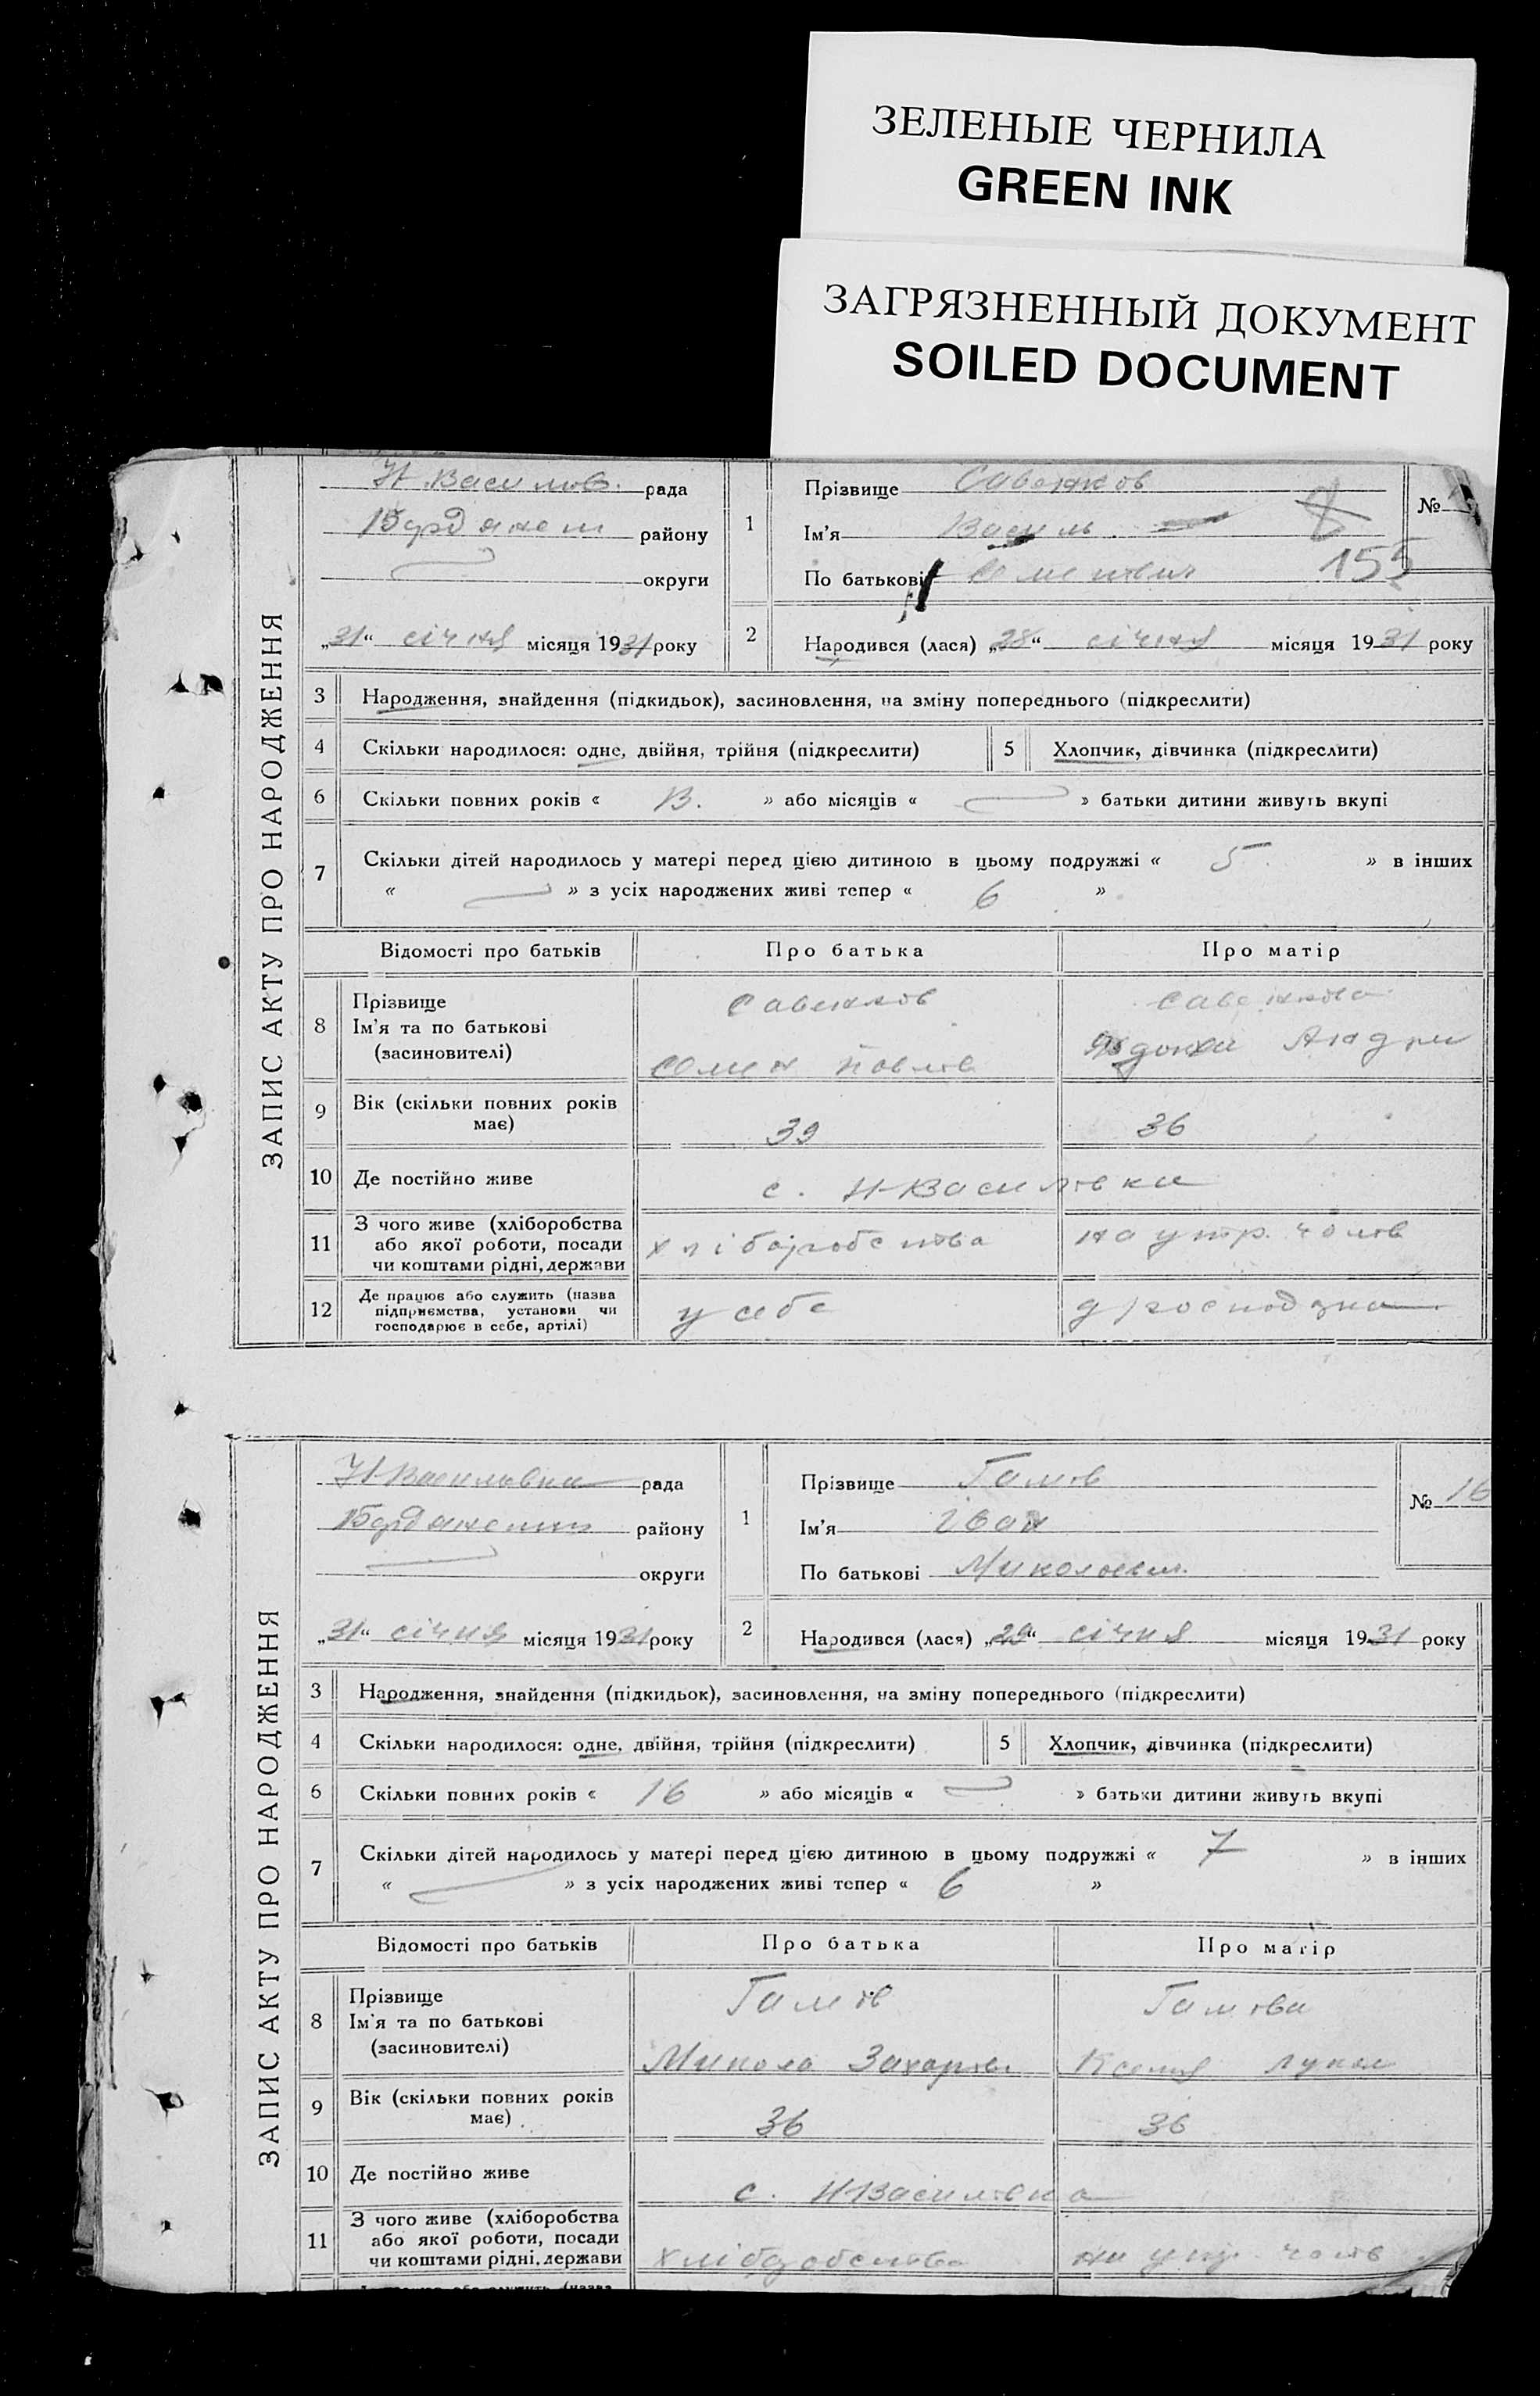 ЗЕЛЕНЫЕ ЧЕРНИЛА
GREEN INK
ЗАГРЯЗНЕННЫЙ ДОКУМЕНТ
SOILED DOCUMENT
ЗАПИС АКТУ ПРО НАРОДЖЕННЯ
Н.Василів. рада
району
округи
„31“ січня місяця 1931 року
1
Прізвище Савенков
Ім'я Василь
По батькові
№
155
2
Народився (лася) „28“ січня місяця 1931 року
3 Народження, знайдення (підкидьок), засиновлення, на зміну попереднього (підкреслити)
4 Скільки народилося: одне, двійня, трійня (підкреслити) 5 Хлопчик, дівчинка (підкреслити)
6 Скільки повних років « » або місяців « » батьки дитини живуть вкупі
7 Скільки дітей народилось у матері перед цією дитиною в цьому подружжі « 5 » в інших
« » з усіх народжених живі тепер « 6 »
Відомості про батьків Про батька Про матір
8 Прізвище Савенков Савенкова
Ім'я та по батькові
(засновителі) Семен Павлов Явдоха Андри
9 Вік (скільки повних років має) 39 36
10 Де постійно живе с. Н-Василівка
11 З чого живе (хліборобства
або якої роботи, посади
чи коштами рідні, держави хліборобства на утр. чолов
12 Де працює або служить (назва
підприємства, установи чи
господарює в себе, артілі) у себе
ЗАПИС АКТУ ПРО НАРОДЖЕННЯ
Н-Василівка рада
району
округи
„31“ січня місяця 1931 року
1
Прізвище Гамов
Ім'я Іван
По батькові Миколаєвич
№ 16
2
Народився (лася) „29“ січня місяця 1931 року
3 Народження, знайдення (підкидьок), засиновлення, на зміну попереднього (підкреслити)
4 Скільки народилося: одне, двійня, трійня (підкреслити) 5 Хлопчик, дівчинка (підкреслити)
6 Скільки повних років « 16 » або місяців « » батьки дитини живуть вкупі
7 Скільки дітей народилось у матері перед цією дитиною в цьому подружжі « 7 » в інших
« » з усіх народжених живі тепер « 6 »
Відомості про батьків Про батька Про матір
8 Прізвище Гамов Гамова
Ім'я та по батькові
(засиновителі) Микола Захаров Ксенія Лукая
9 Вік (скільки повних років має) 36 36
10 Де постійно живе с. Н-Василівка
11 З чого живе (хліборобства
або якої роботи, посади
чи коштами рідні, держави хліборобства на утр. чолов